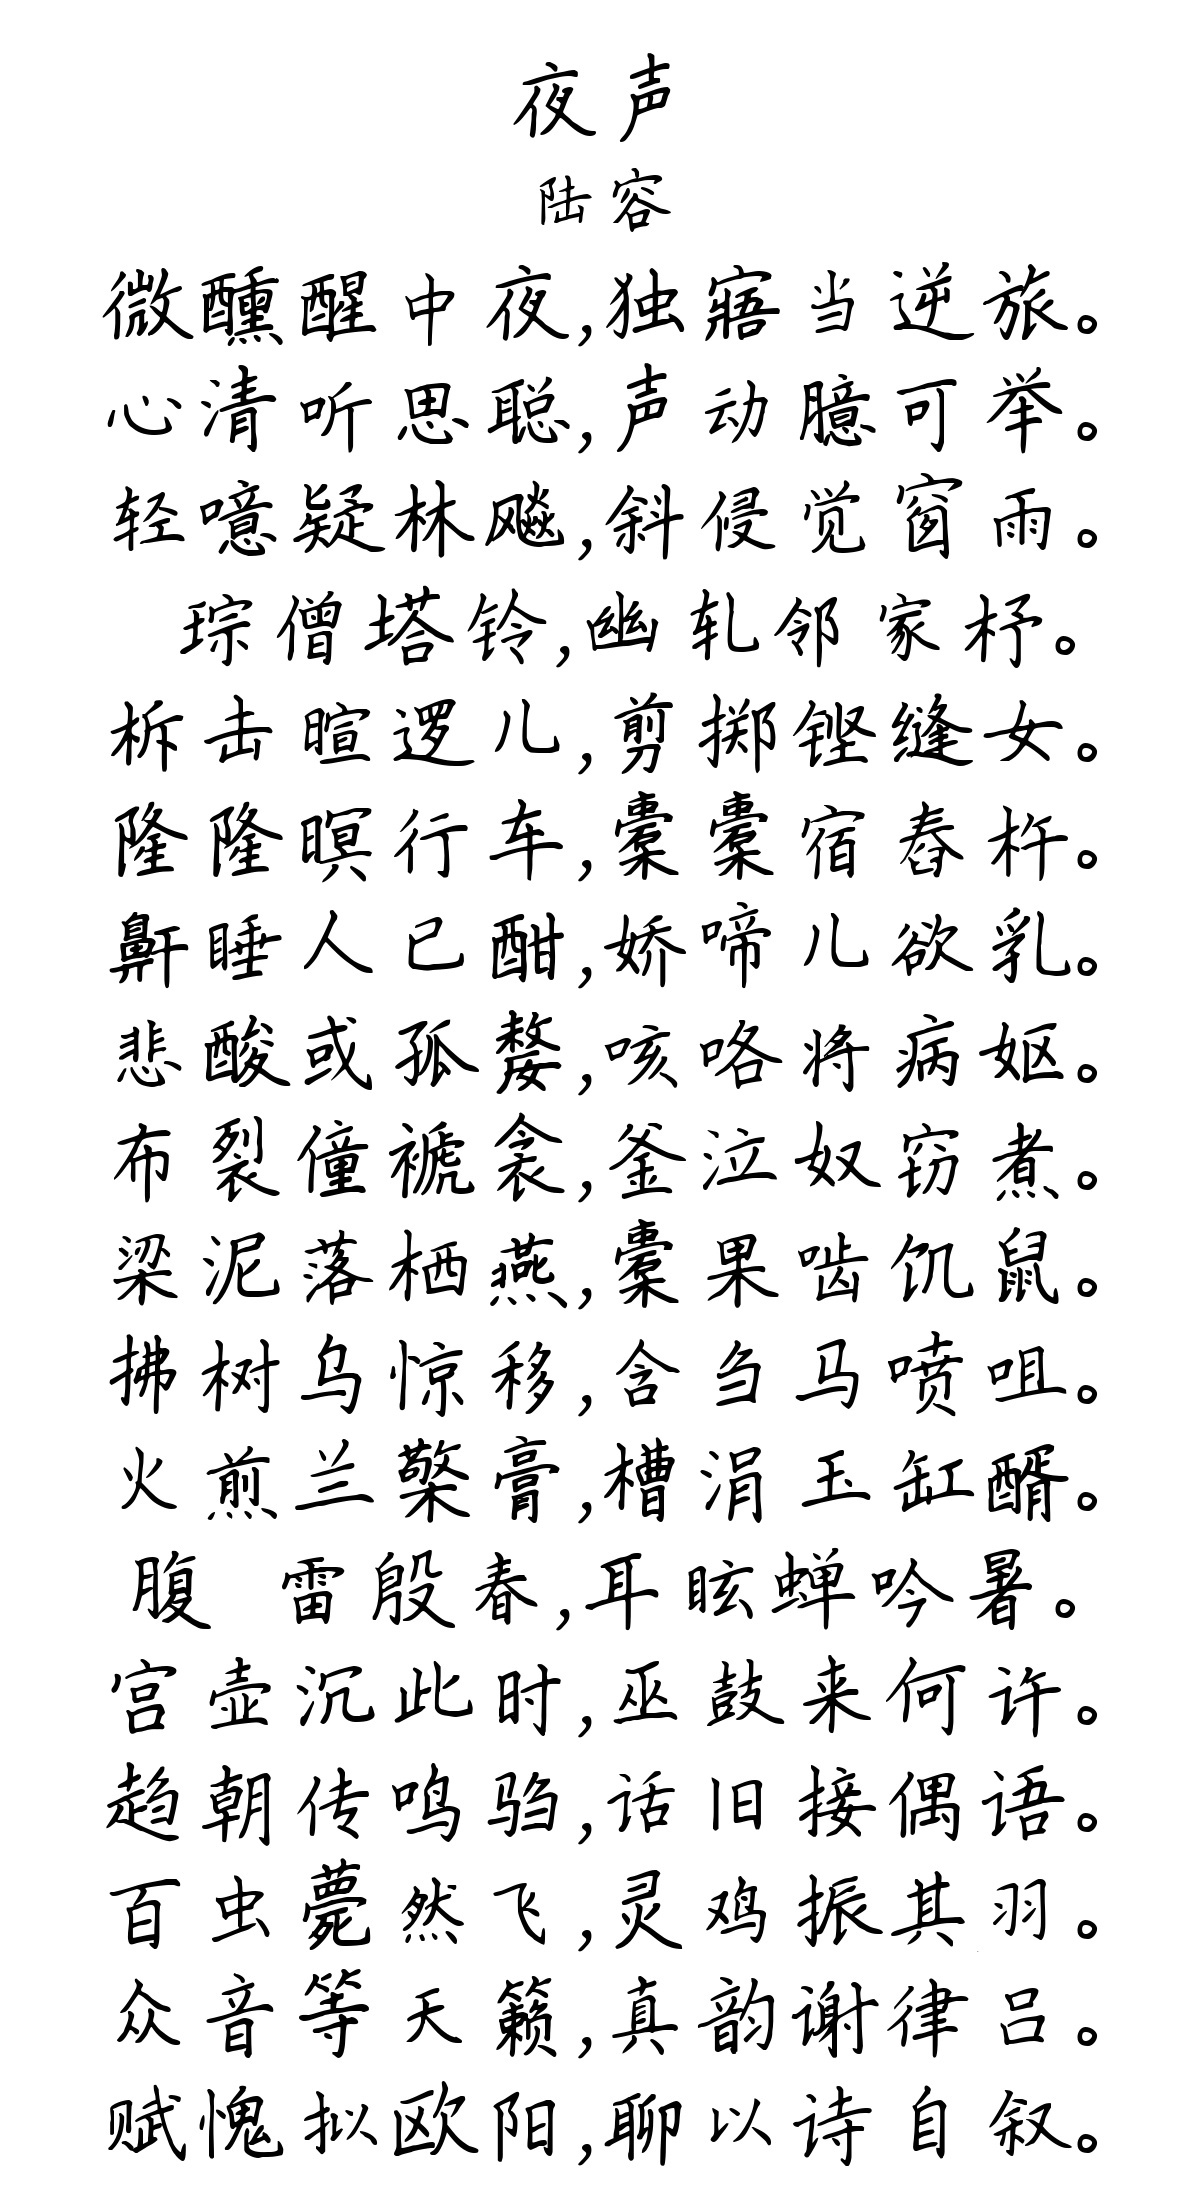 夜声
陆容
微醺醒中夜,独寤当逆旅。
心清听思聪,声动臆可举。
轻噫疑林飚,斜侵觉窗雨。
琮僧塔铃,幽轧邻家杼。
柝击暄逻儿,剪掷铿缝女。
隆隆暝行车,橐橐宿舂杵。
鼾睡人已酣,娇啼儿欲乳。
悲酸或孤嫠,咳咯将病妪。
布裂僮褫衾,釜泣奴窃煮。
梁泥落栖燕,橐果啮饥鼠。
拂树乌惊移,含刍马喷咀。
火煎兰檠膏,槽涓玉缸醑。
腹 雷殷春,耳眩蝉吟暑。
宫壶沉此时,巫鼓来何许。
趋朝传鸣驺,话旧接偶语。
百虫薨然飞,灵鸡振其羽。
众音等天籁,真韵谢律吕。
赋愧拟欧阳,聊以诗自叙。